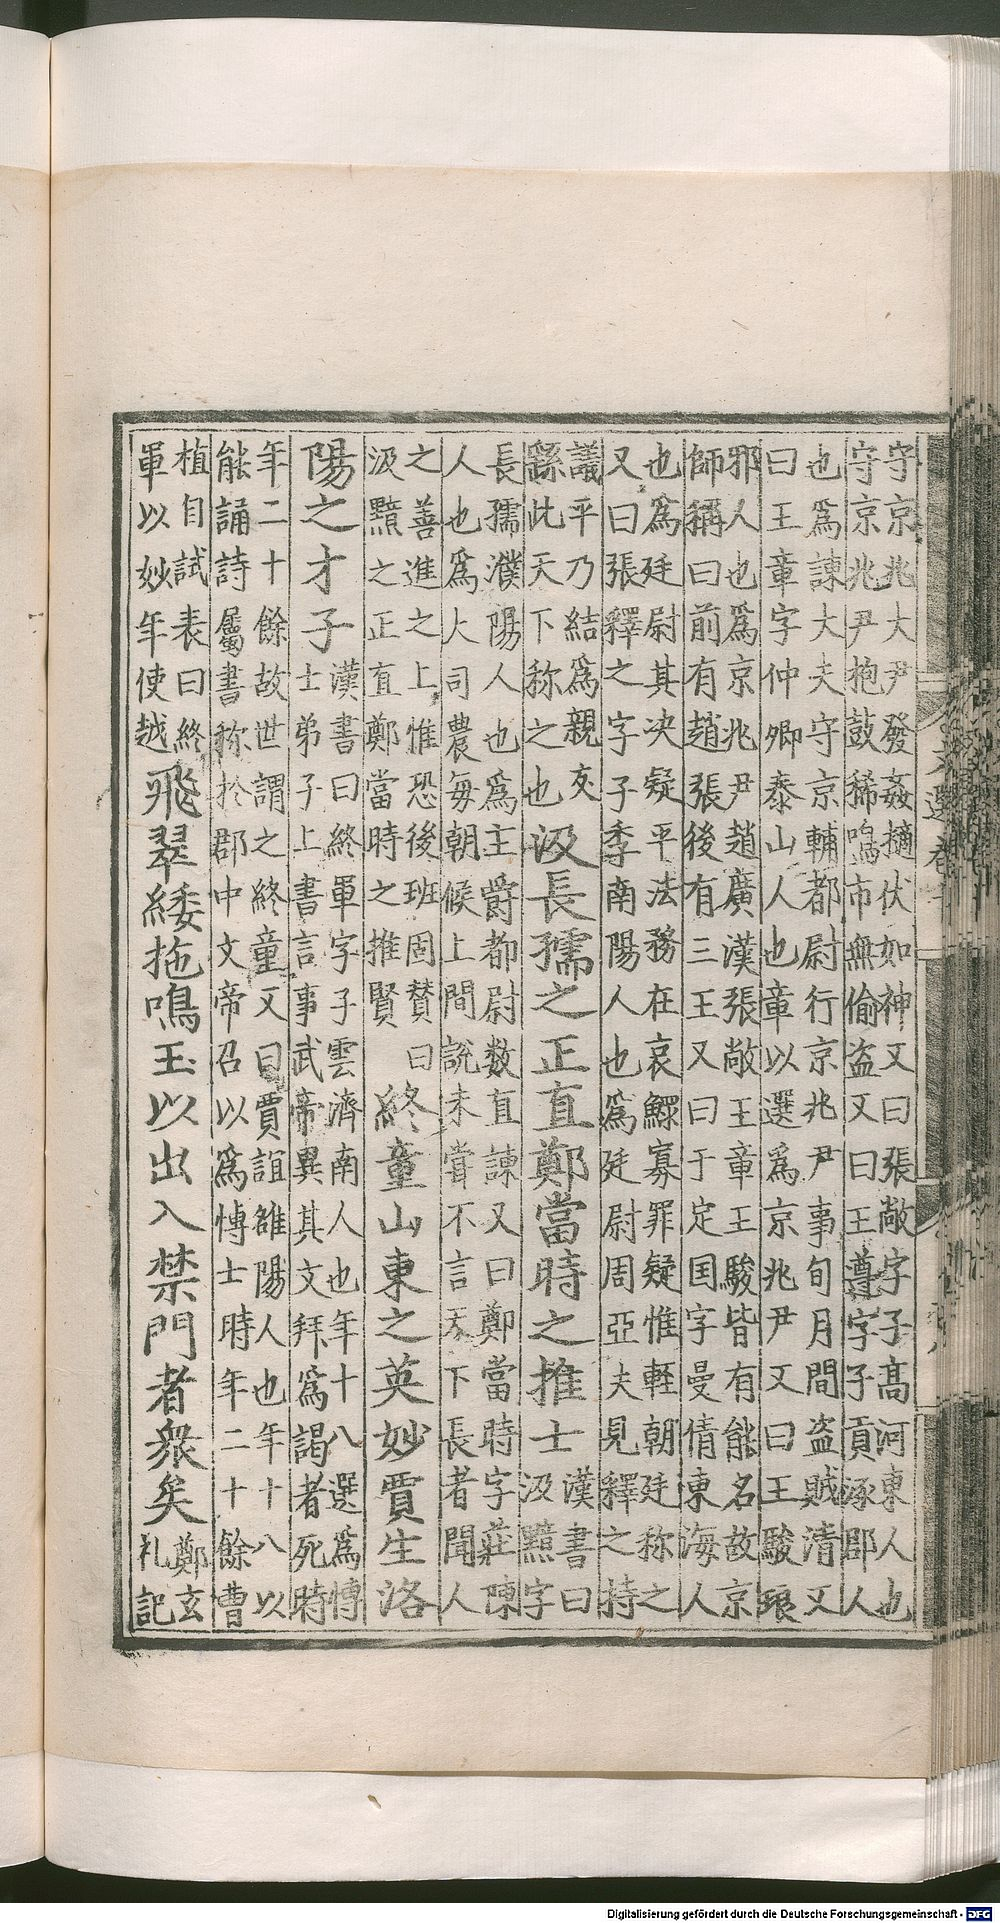 守京兆大尹發姦擿伏如神又曰張敞字子高河東人也
守京兆尹抱鼓稀鳴市無偷盗又曰王遵字子貢涿郡人
也爲諫大夫守京輔都尉行京兆尹事旬月間盗賊清又
曰王章字仲卿泰山人也章以選爲京兆尹又曰王駿琅
邪人也爲京兆尹趙廣漢張敞王章王駿皆有能名故京
師稱曰前有趙張後有三王又曰于定国字曼倩東海人
也爲廷尉其决疑平法務在哀鰥寡罪疑惟輕朝廷称之
又曰張釋之字子季南陽人也爲廷尉周亞夫見釋之持
議平乃結爲親友
繇此天下称之也
汲長孺之正直鄭當時之推士
漢書曰
汲黯字
長孺濮陽人也爲主爵都尉数直諫又曰鄭當時字莊陳
人也爲大司農毎朝候上間説未嘗不言天下長者聞人
之善進之上惟恐後班固賛曰
汲黯之正直鄭當時之推賢
終童山東之英妙賈生洛
陽之才子
漢書曰終軍字子雲濟南人也年十八選爲博
士弟子上書言事武帝異其文拜爲謁者死時
年二十餘故世謂之終童又曰賈誼雒陽人也年十八以
能誦詩屬書称於郡中文帝召以爲博士時年二十餘曹
植自試表曰終
軍以妙年使越
飛翠緌拖鳴玉以出入禁門者衆矣
鄭玄
礼記
Digitalisierung gefördert durch die Deutsche Forschungsgemeinschaft - DFG